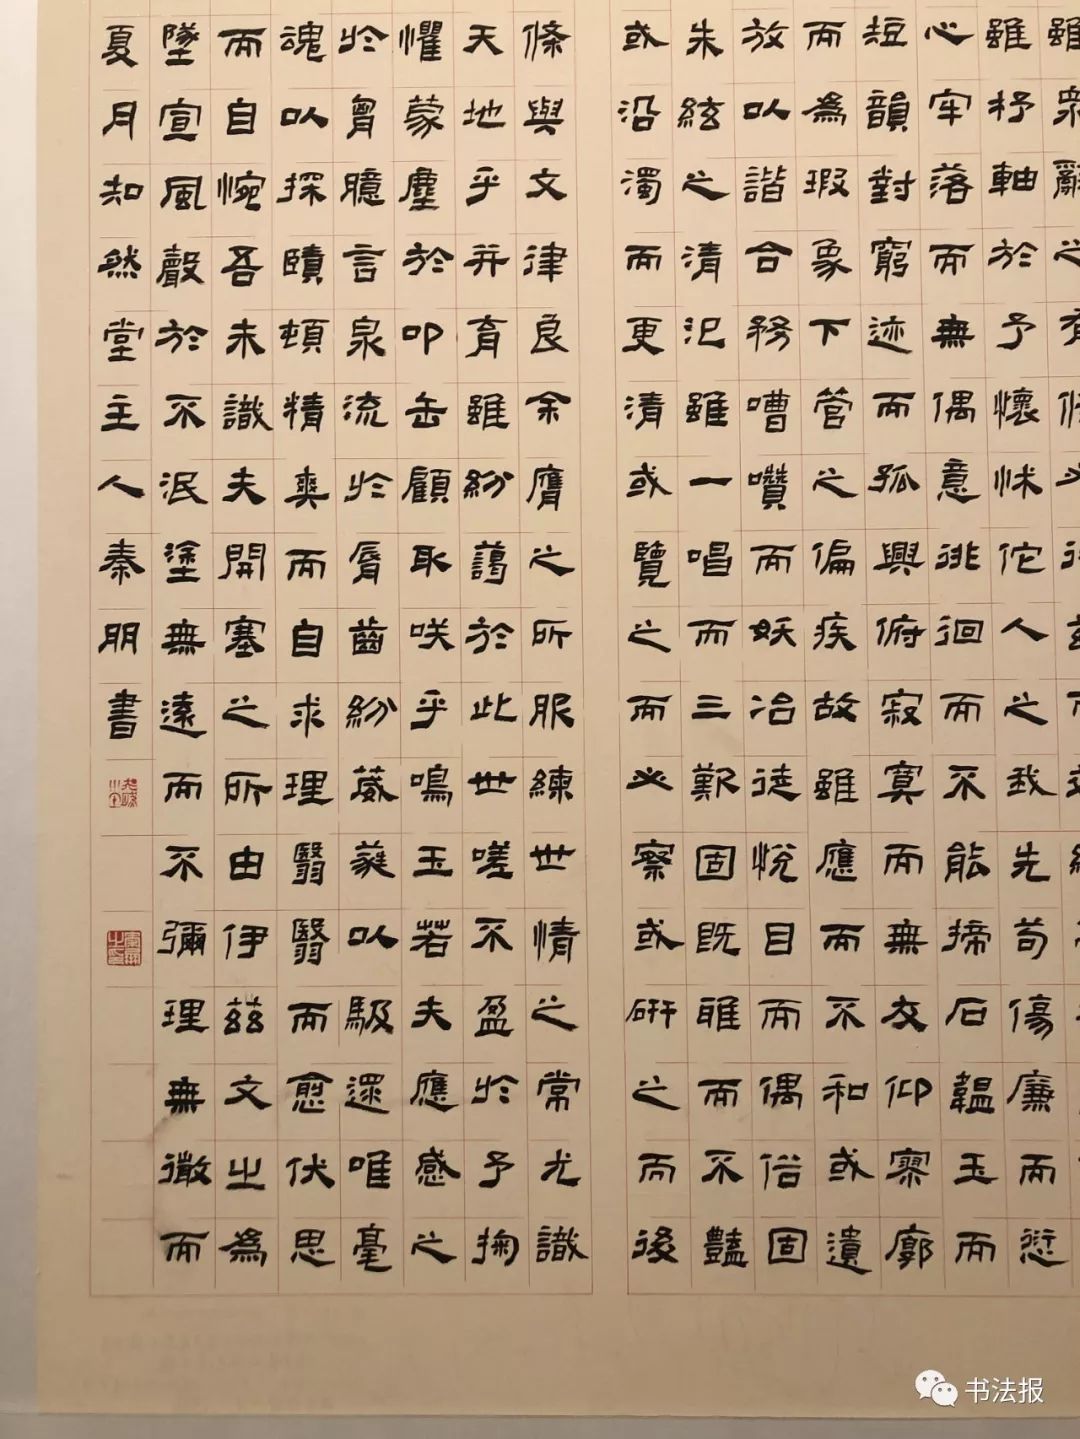 雖衆辭之有
雖杼軸於予懷怵佗人之我先苟傷廉而愆
心牢落而無偶意徘徊而不能揥石韞玉而
短韻對窮迹而孤興俯寂寞而無友仰寥廓
而為瑕象下管之偏疾故雖應而不和或遺
放以諧合務嘈囋而妖冶徒悅目而偶俗固
朱絃之清氾雖一唱而三歎固既雅而不豔
或沿濁而更清或覽之而必察或研之而後
條與文律良余膺之所服練世情之常尤識
天地乎并育雖紛藹於此世嗟不盈於予掬
懼蒙塵於叩缶顧取咲乎鳴玉若夫應感之
於胷臆言泉流於脣齒紛葳蕤以馺遝唯毫
魂以探賾頓精爽而自求理翳翳而愈伏思
而自惋吾未識夫開塞之所由伊茲文之為
墜宣風聲於不泯塗無遠而不彌理無微而
夏月知然堂主人秦朋書
书法报